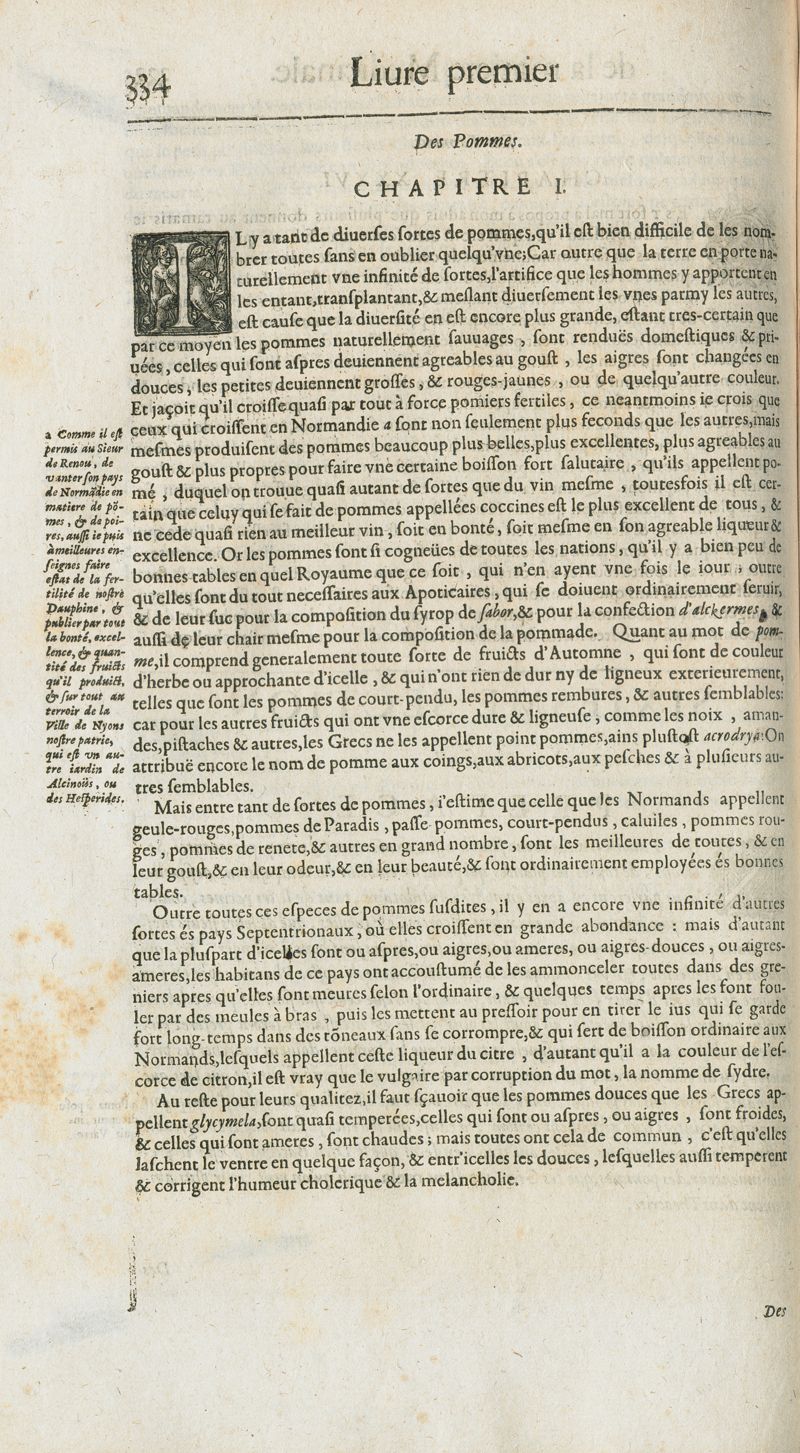 334
Liure premier
Des Pommes.
CHAPITRE I.
IL y a tant de diuerſes ſortes de pommes,qu'il eſt bien difficile de les nom-
brer toutes ſans en oublier quelqu'vne;Car outre que la terre en porte na-
turellement vne infinité de ſortes,l'artifice que les hommes y apportent en
les entant,tranſplantant,& meſlant diuerſement les vnes parmy les autres,
eſt cauſe que la diuerſité en eſt encore plus grande, eſtant tres-certain que
par ce moyen les pommes naturellement ſauuages , ſont renduës domeſtiques & pri-
uées , celles qui ſont aſpres deuiennent agreables au gouſt , les aigres ſont changées en
douces , les petites deuiennent groſſes , & rouges-jaunes , ou de quelqu'autre couleur.
Et jaçoit qu'il croiſſe quaſi par tout à force pomiers fertiles , ce neantmoins ie crois que
ceux qui croiſſent en Normandie a ſont non ſeulement plus feconds que les autres,mais
meſmes produiſent des pommes beaucoup plus belles,plus excellentes, plus agreables au
gouſt & plus propres pour faire vne certaine boiſſon fort ſalutaire , qu'ils appellent po-
mé , duquel on trouue quaſi autant de ſortes que du vin meſme , toutesfois il eſt cer-
tain que celuy qui ſe fait de pommes appellées coccines eſt le plus excellent de tous , &
ne cede quaſi rien au meilleur vin , ſoit en bonté, ſoit meſme en ſon agreable liqueur &
excellence. Or les pommes ſont ſi cogneües de toutes les nations , qu'il y a bien peu de
bonnes tables en quel Royaume que ce ſoit , qui n'en ayent vne fois le iour , outre
qu'elles ſont du tout neceſſaires aux Apoticaires , qui ſe doiuent ordinairement ſeruir,
& de leur ſuc pour la compoſition du ſyrop de ſabor,& pour la confection d'alckermes, &
auſſi de leur chair meſme pour la compoſition de la pommade. Quant au mot de pom-
me,il comprend generalement toute ſorte de fruicts d'Automne , qui ſont de couleur
d'herbe ou approchante d'icelle , & qui n'ont rien de dur ny de ligneux exterieurement,
telles que ſont les pommes de court-pendu, les pommes rembures, & autres ſemblables:
car pour les autres fruicts qui ont vne eſcorce dure & ligneuſe , comme les noix , aman-
des,piſtaches & autres,les Grecs ne les appellent point pommes,ains pluſtoſt acrodrya:On
attribuë encore le nom de pomme aux coings,aux abricots,aux peſches & à pluſieurs au-
tres ſemblables.
a Comme il eſt
permis au Sieur
de Renou, de
vanter ſon pays
de Normãdie en
matiere de põ-
mes , & de poi-
res, auſſi ie puis
à meilleures en-
ſeignes faire
eſtat de la fer-
tilité de noſtre
Dauphine, &
publier par tout
la bonté, excel-
lence, & quan-
tité des fruicts
qu'il produict,
& ſur tout au
terroir de la
Ville de Nyons
noſtre patrie,
qui eſt vn au-
tre iardin de
Alcinoüs, ou
des Heſperides.
Mais entre tant de ſortes de pommes , i'eſtime que celle que les Normands appellent
geule-rouges,pommes de Paradis , paſſe-pommes, court-pendus , caluiles , pommes rou-
ges , pommes de renete,& autres en grand nombre, ſont les meilleures de toutes , & en
leur gouſt,& en leur odeur,& en leur beauté,& ſont ordinairement employées és bonnes
tables.
Outre toutes ces eſpeces de pommes ſuſdites , il y en a encore vne infinité d'autres
ſortes és pays Septentrionaux , où elles croiſſent en grande abondance : mais d'autant
que la pluſpart d'icelles ſont ou aſpres,ou aigres,ou ameres, ou aigres-douces , ou aigres-
ameres,les habitans de ce pays ont accouſtumé de les ammonceler toutes dans des gre-
niers apres qu'elles ſont meures ſelon l'ordinaire , & quelques temps apres les font fou-
ler par des meules à bras , puis les mettent au preſſoir pour en tirer le ius qui ſe garde
fort long-temps dans des tõneaux ſans ſe corrompre,& qui ſert de boiſſon ordinaire aux
Normands,leſquels appellent ceſte liqueur du citre , d'autant qu'il a la couleur de l'eſ-
corce de citron,il eſt vray que le vulgaire par corruption du mot , la nomme de ſydre.
Au reſte pour leurs qualitez,il faut ſçauoir que les pommes douces que les Grecs ap-
pellent glycymela,ſont quaſi temperées,celles qui ſont ou aſpres , ou aigres , ſont froides,
& celles qui ſont ameres , ſont chaudes ; mais toutes ont cela de commun , c'eſt qu'elles
laſchent le ventre en quelque façon, & entr'icelles les douces , leſquelles auſſi temperent
& corrigent l'humeur cholerique & la melancholie.
Des